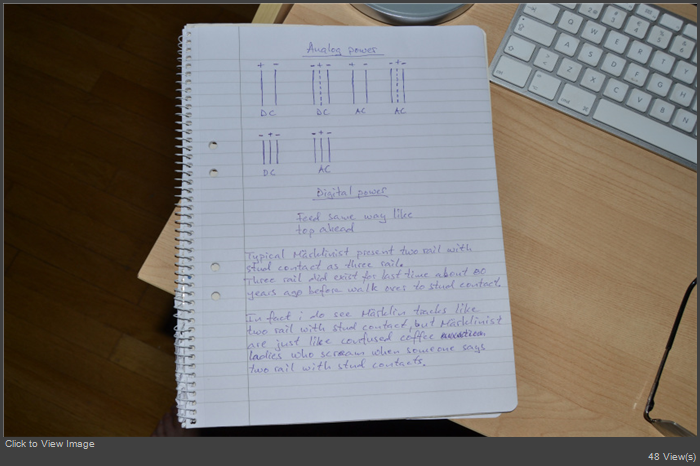 Analog power
+ - - + - + - - + -
DC DC AC AC
- + - - + -
DC AC
Digital power
Feed same way like
top ahead
Typical Märklinist present two rail with
stud contact as three rail.
Three rail did exist for last time about 60
years ago before walk over to stud contact.
In fact i do see Märklin tracks like
two rail with stud contact, but Märklinist
are just like confused coffee
ladies who scream when someone says
two rail with stud contacts.
Click to View Image
48 View(s)